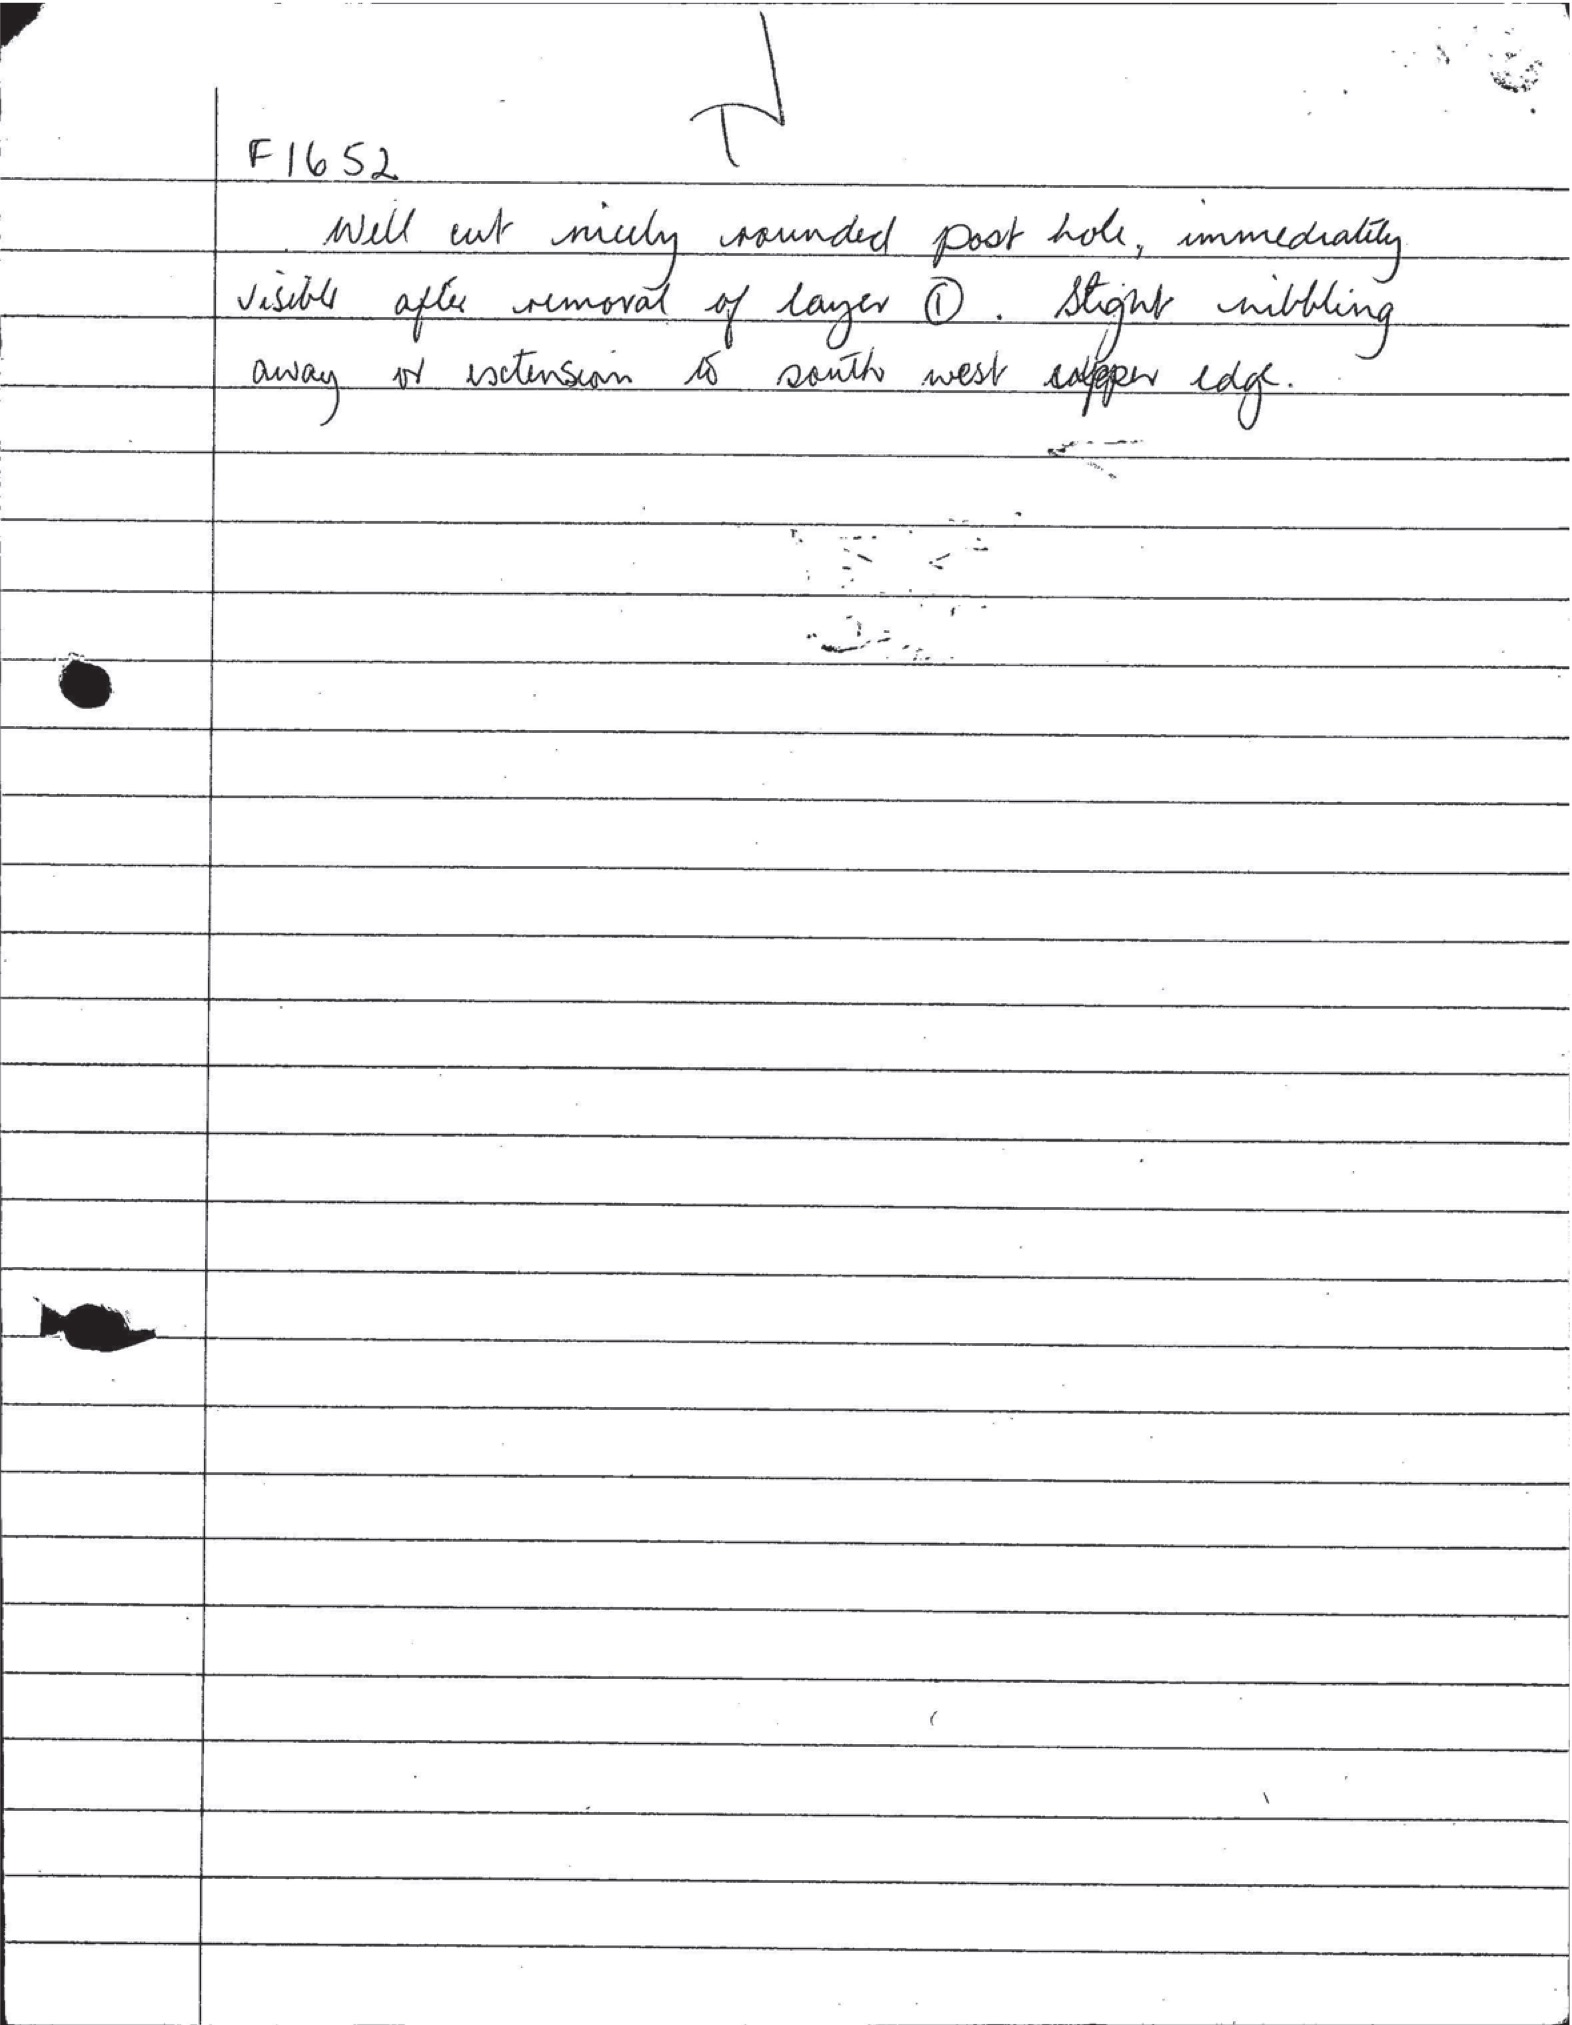 F1652
Well cut nicely rounded post hole, immediately
visible after removal of layer ①. Slight nibbling
away or extension to south west upper edge.